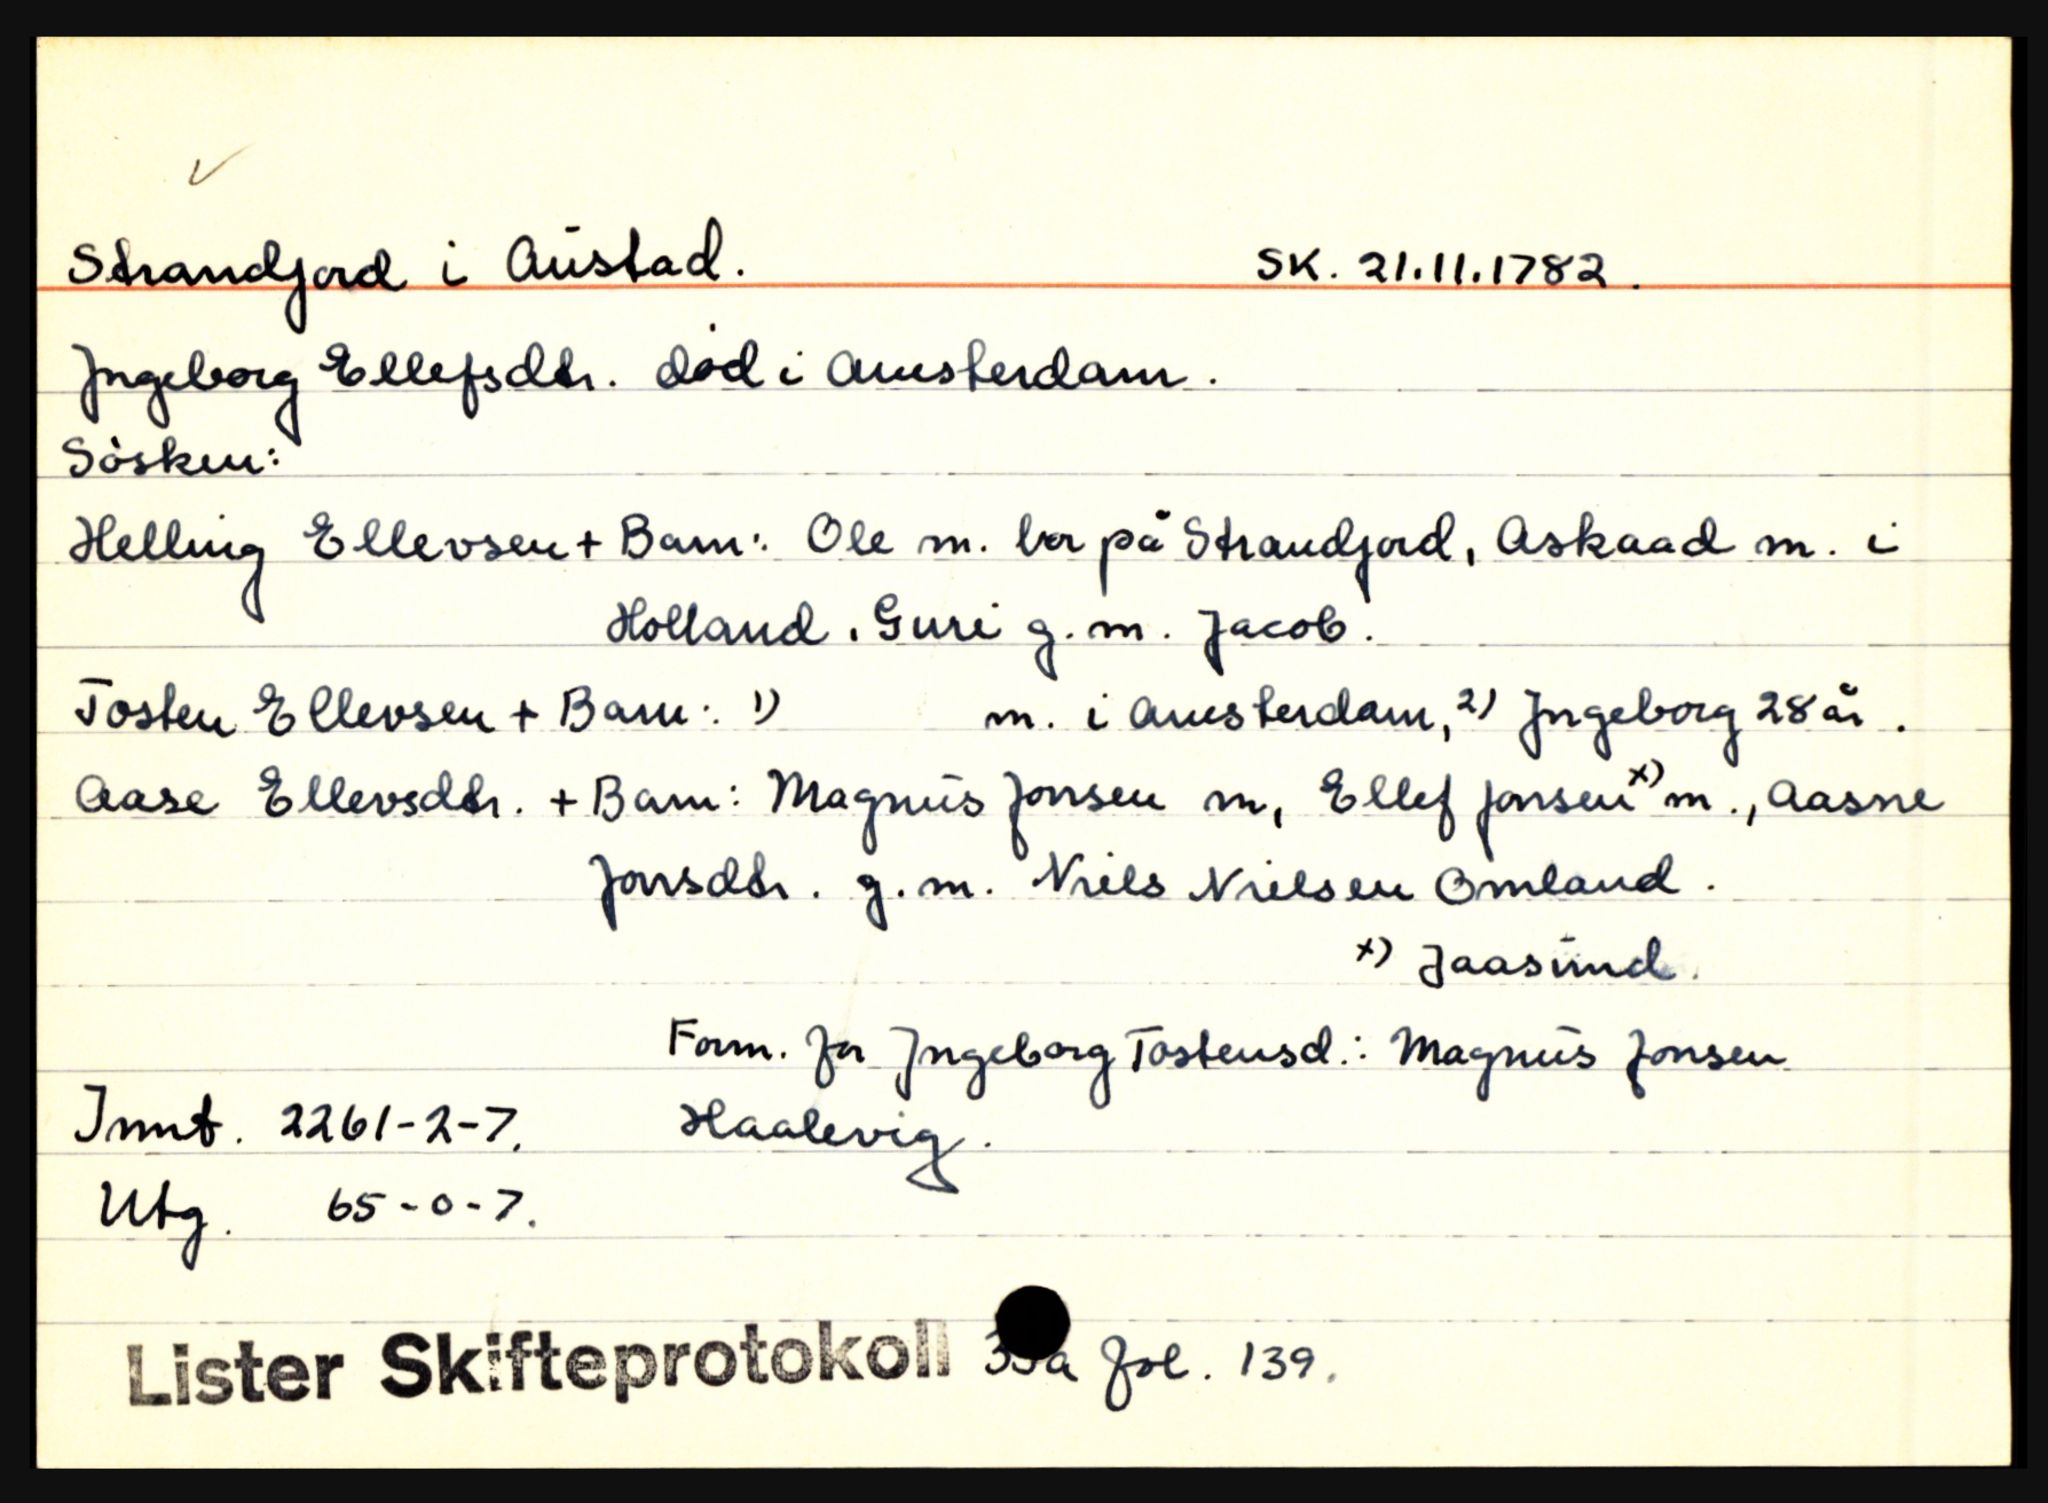 Strandjord i Austad. SK. 21.11.1782.
Ingeborg Ellefsdtr. död i Amsterdam.
Sösken:
Helling Ellevsen + Barn: Ole m. bor på Strandjord, Askaad m. i
Holland. Guri g.m. Jacob.
Tosten Ellevsen + Barn: 1) m. i Amsterdam, 2) Ingeborg 28 år.
Aase Ellevsdtr. + Barn: Magnus Jonsen m, Ellef Jonsen x) m., Aasne
Jonsdtr. g.m. Niels Nielsen Omland.
x) Jaasund.
Form. for Ingeborg Tostensd.: Magnus Jonsen
Innt. 2261-2-7. Haalevig.
Utg. 65-0-7.
Lister Skifteprotokoll fol. 139.